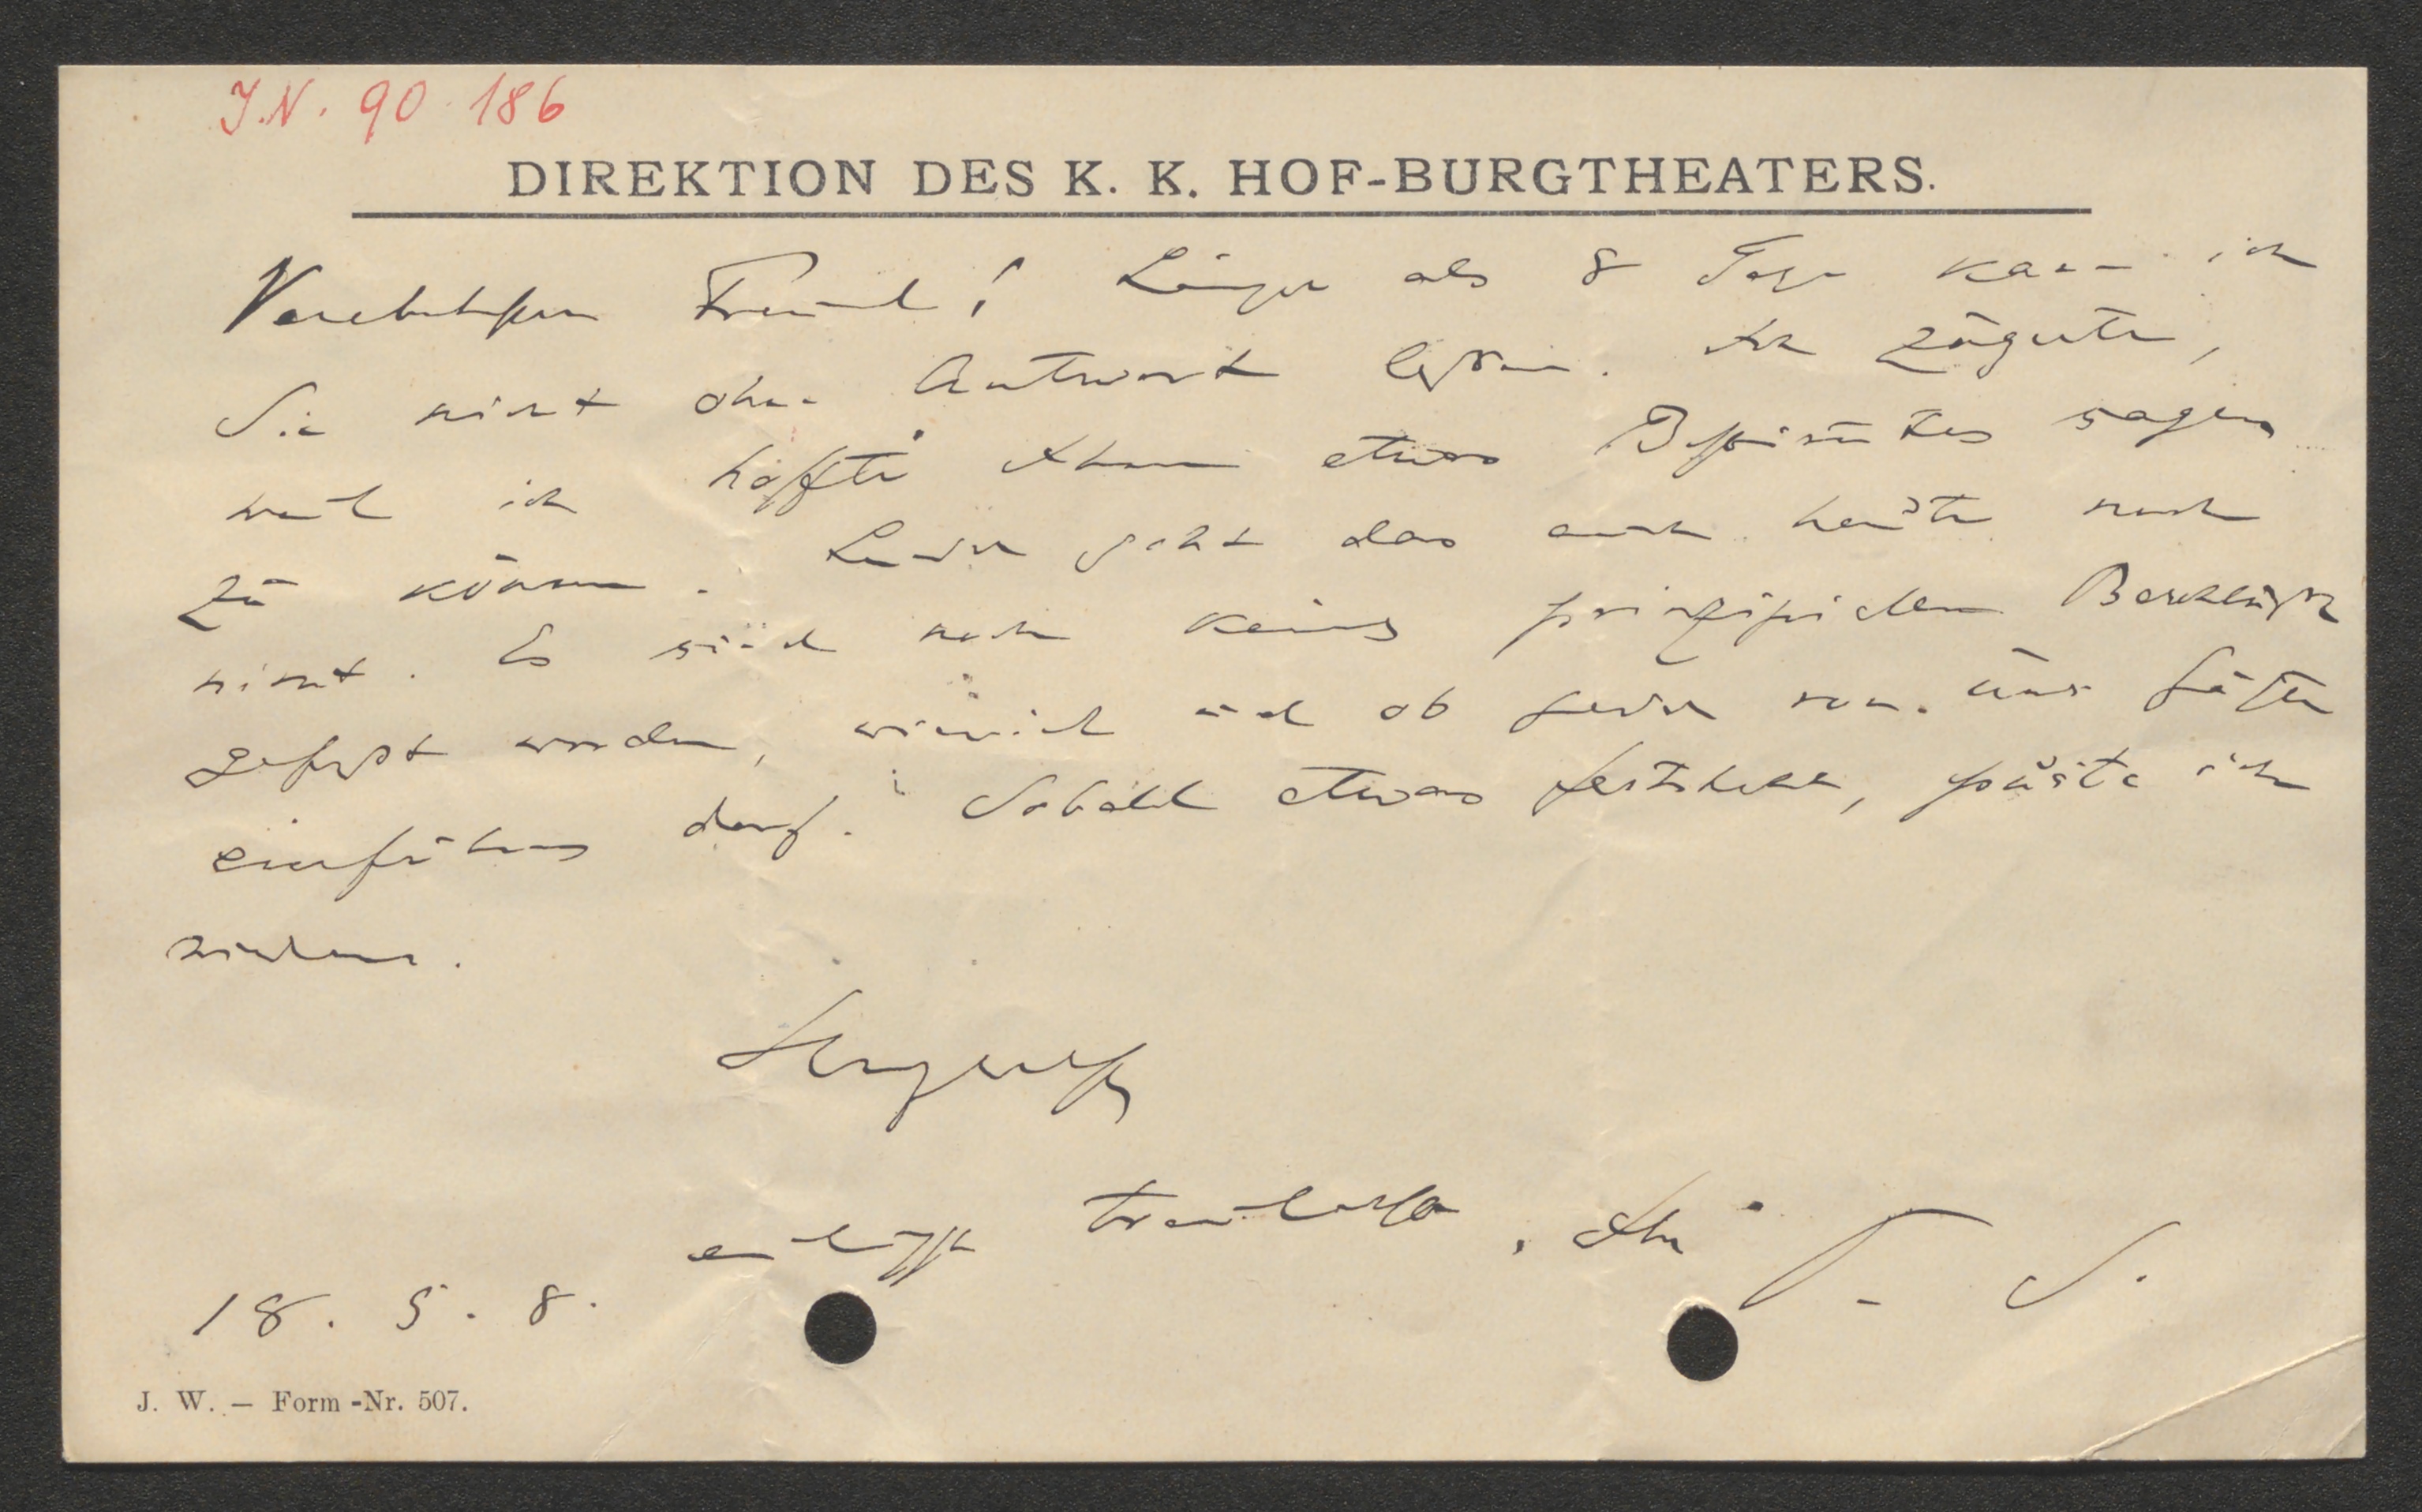 J.N. 90.186
DIREKTION DES K. K. HOF-BURGTHEATERS.
Verehrtester Freund! Länger als 8 Tage kann ich
Sie nicht ohne Antwort lassen. Ich zögerte,
weil ich hoffte Ihnen etwas Bestimmtes sagen
zu können. Leider geht das auch heute noch
nicht. Es sind noch keine prinzipiellen Beschlüsse
gefasst worden, wieviel und ob jeder von uns Gäste
einführen darf. Sobald etwas feststeht, schreibe ich
Ihnen.
Herzlichst
18. 5. 8.
J. W. — Form-Nr. 507.